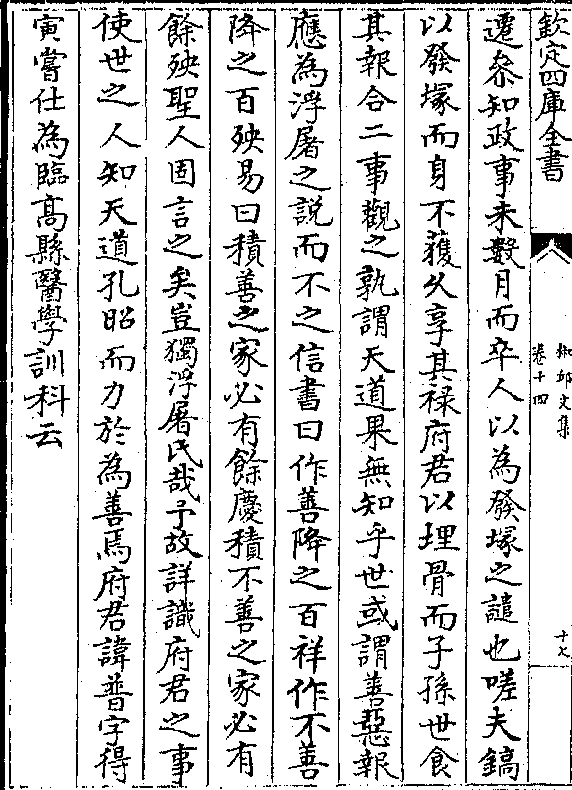 欽定四庫全書
椒邱文集
卷十四
十七
遷參知政事未數月而卒人以為發塚之譴也嗟夫鎬
以發塚而身不獲久享其祿府君以埋骨而子孫世食
其報合二事觀之孰謂天道果無知乎世或謂善惡報
應為浮屠之說而不之信書曰作善降之百祥作不善
降之百殃易曰積善之家必有餘慶積不善之家必有
餘殃聖人固言之矣豈獨浮屠氏哉予故詳識府君之事
使世之人知天道孔昭而力於為善焉府君諱普字得
寅嘗仕為臨高縣醫學訓科云